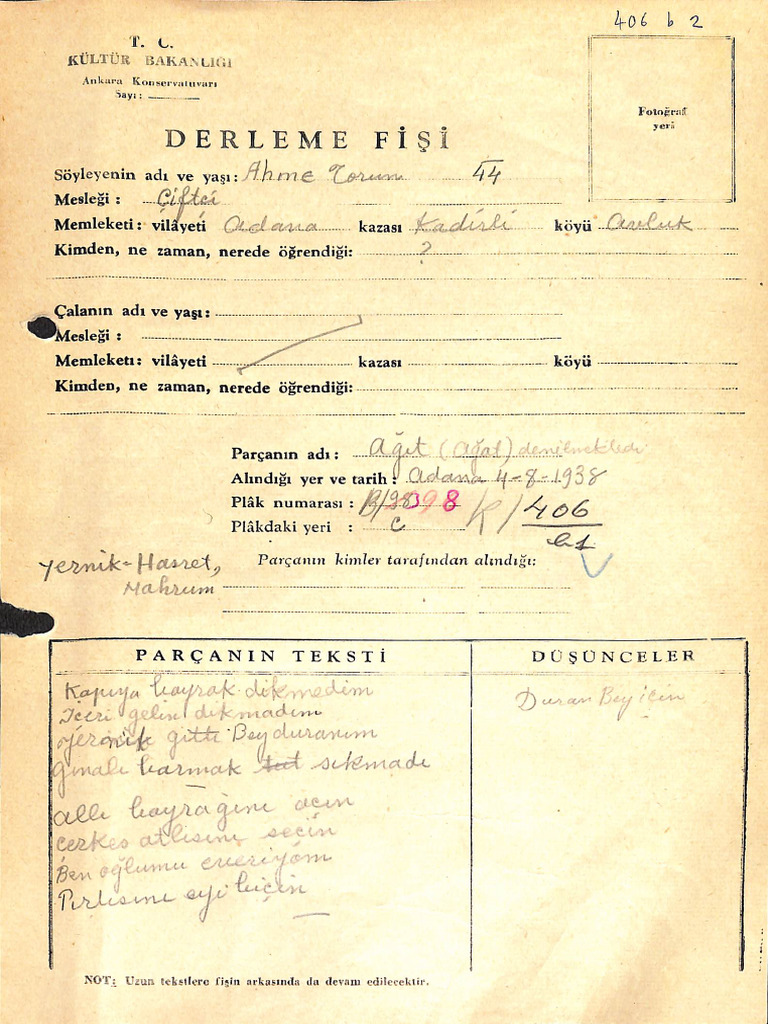 406 b 2
T. C.
KÜLTÜR BAKANLIĞI
Ankara Konservatuvarı
Sayı:
Fotoğraf
yeri
DERLEME FİŞİ
Söyleyenin adı ve yaşı: Ahme Torun 44
Mesleği : Çiftçi
Memleketi: vilâyeti Adana kazası Kadirli köyü Avluk
Kimden, ne zaman, nerede öğrendiği: ?
Çalanın adı ve yaşı:
Mesleği :
Memleketi: vilâyeti kazası köyü
Kimden, ne zaman, nerede öğrendiği:
Parçanın adı: Ağıt (Ağat) denilmektedir
Alındığı yer ve tarih: Adana 4-8-1938
Plâk numarası : 098 K/406
Plâkdaki yeri : C b1
Yernik-Hasret,
Mahrum
Parçanın kimler tarafından alındığı:
PARÇANIN TEKSTİ
Kapıya bayrak dikmedim
İçeri gelin dıkmadım
yernik gitti Bey duranım
Gınalı barmak tut sıkmadı
Allı bayrağını açın
Çerkes atlısını seçin
Ben oğlumu everiyom
Pırlısını eyi biçin
DÜŞÜNCELER
Duran Bey için
NOT: Uzun tekstlere fişin arkasında da devam edilecektir.